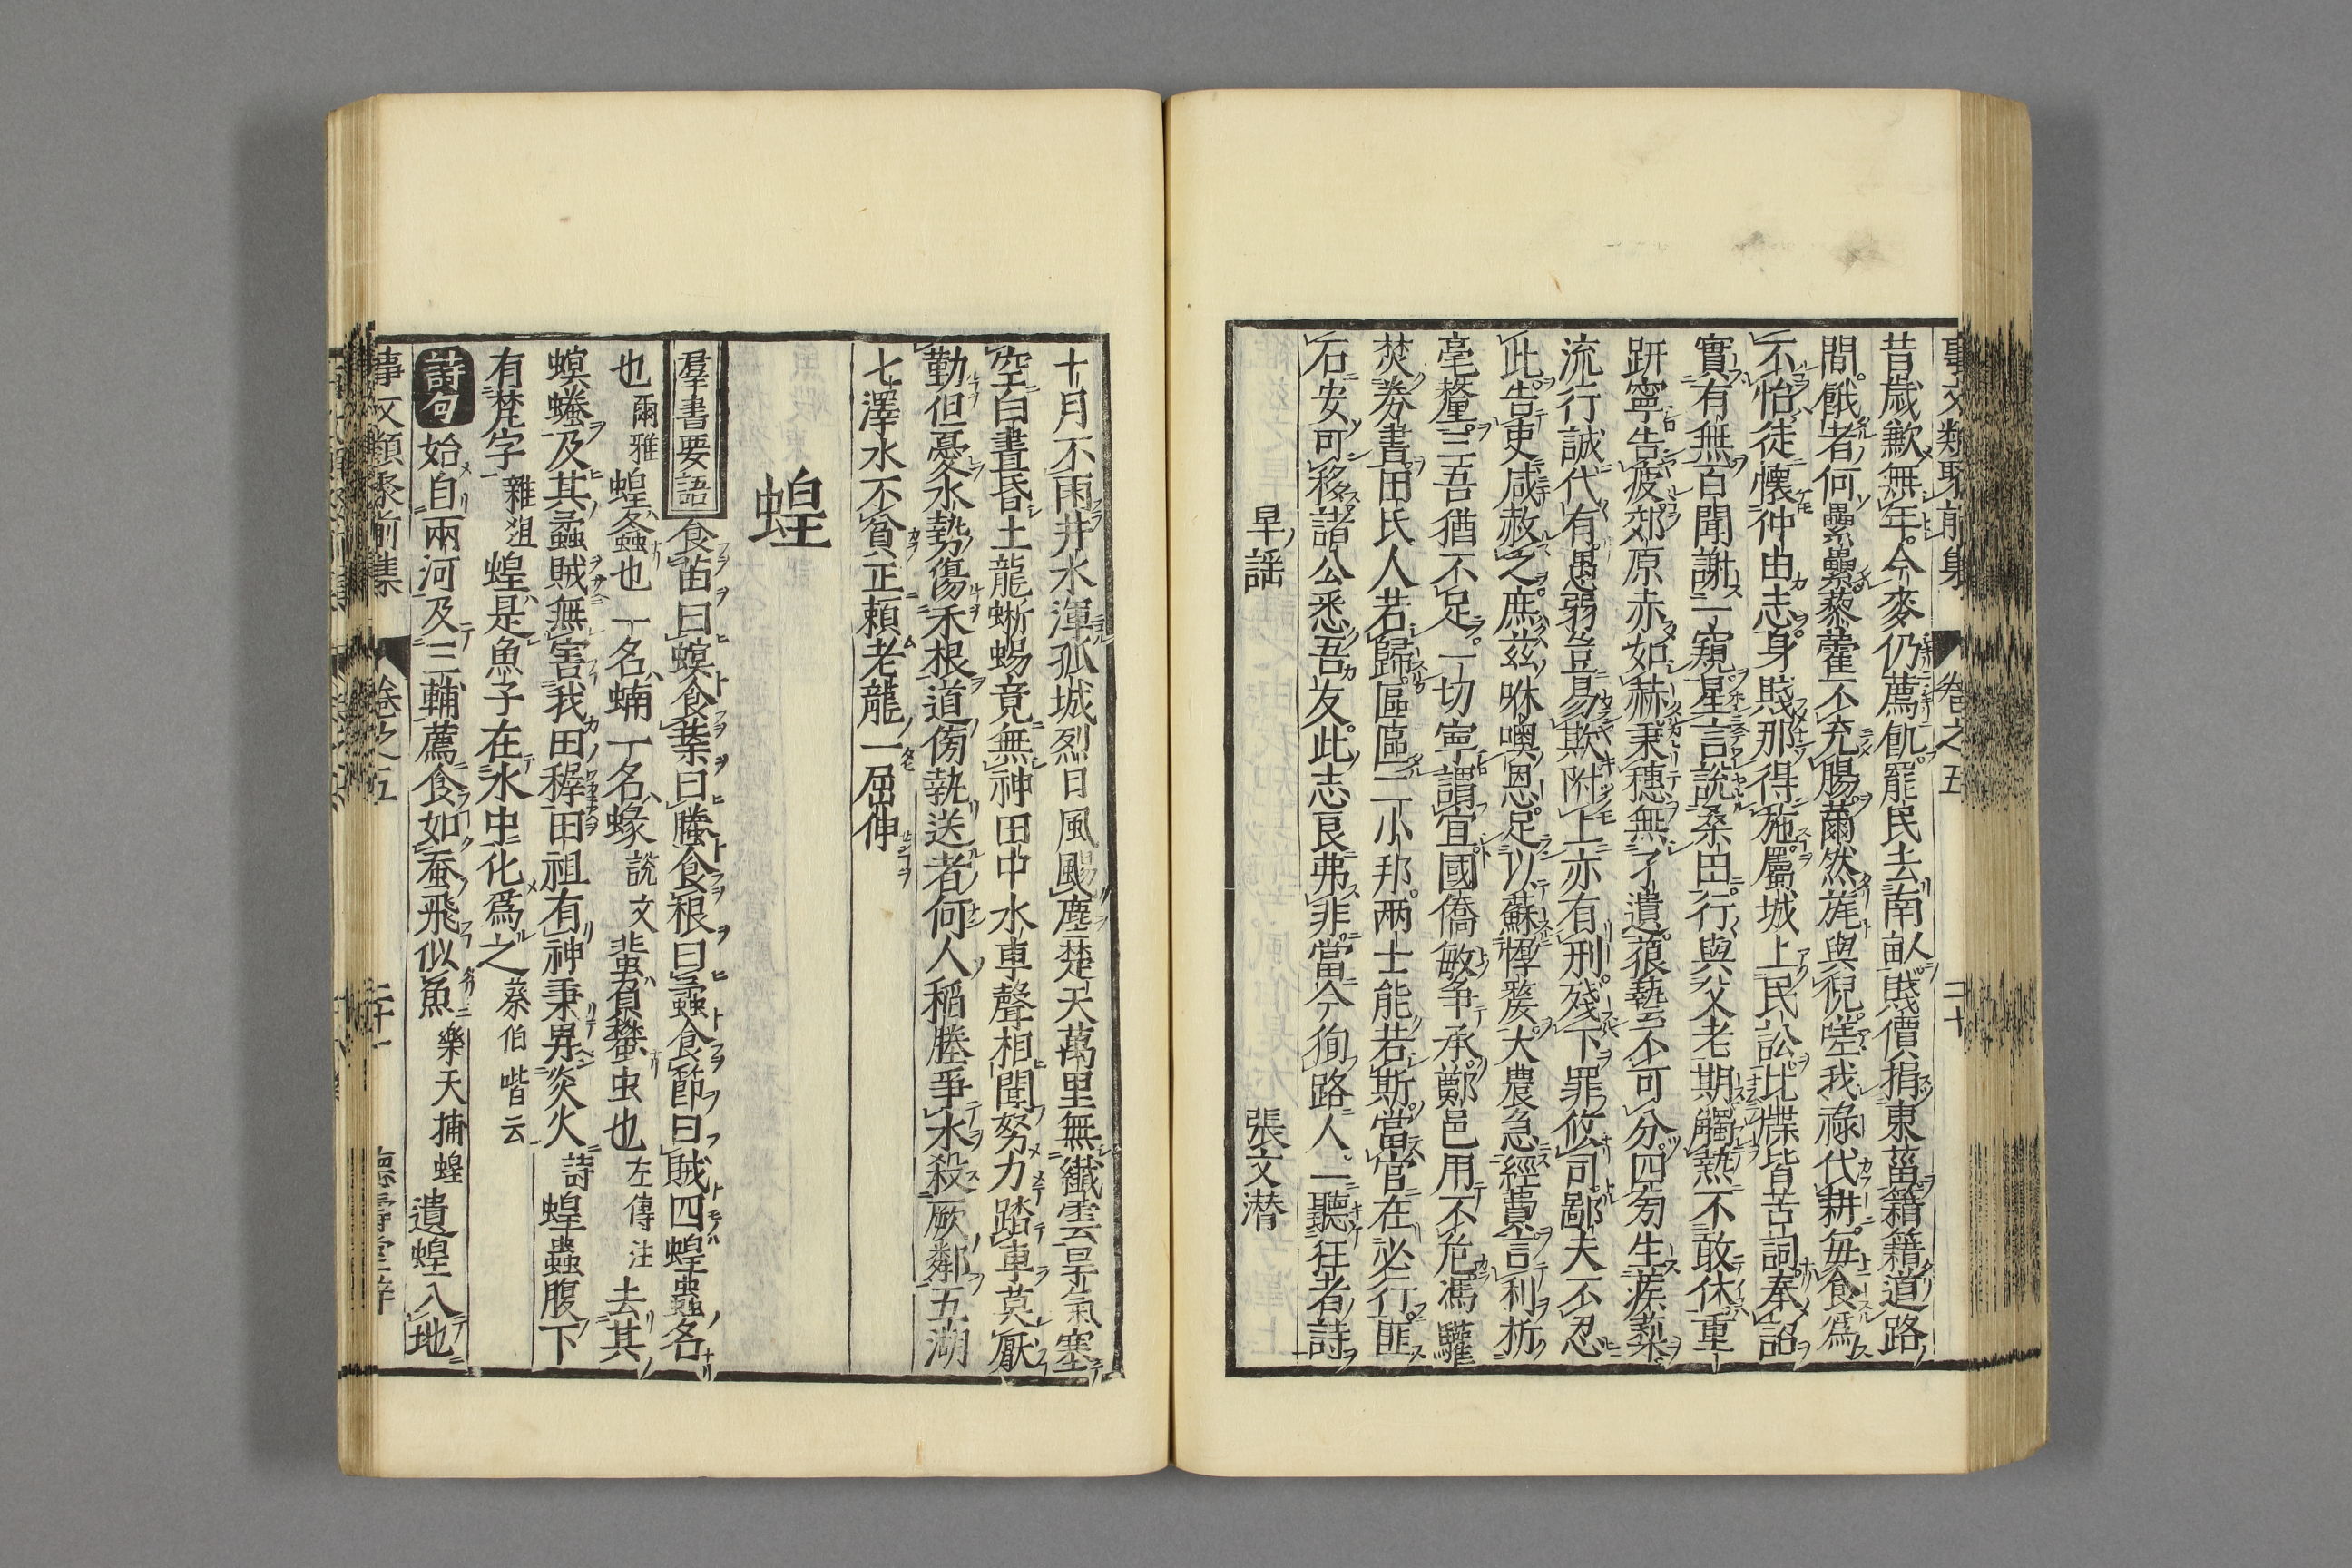 事文類聚前集 卷之五 二十
昔歲歉無年今麥仍薦飢罷民去南畝賤價捐東菑籍籍道路
間餓者何纍纍藜藿不充腸薾然旄與倪嗟我祿代耕每食爲
不怡徒懷仲由志身賤那得施屬城上民訟比牒皆苦詞奉詔
實有無百聞謝一窺星言說桑田行與父老期觸熱不敢休重
趼寧告疲郊原赤如赫秉穗無孑遺蒗蓺不可分四旁生蒺藜
流行誠代有愚弱豈易欺附上亦有刑殘下罪攸司鄙夫不忍
此告吏咸赦之庶茲咻噢恩足以蘇惸嫠大農急經費言利折
毫釐三吾猶不足一切寧謂宜國僑敏争承鄭邑用不危馮驩
焚券書田氏人若歸區區二小邦兩士能若斯當官在必行匪
石安可移諸公悉吾友此志良弗非當今徇路人一聽狂者詩
旱謡 張文潜
十月不雨井水渾孤城烈日風颺塵楚天萬里無纖雲旱氣塞
空白晝昏土龍蜥蜴竟無神田中水車聲相聞努力踏車莫厭
勤但憂水勢傷禾根道傍執送者何人稻塍爭水殺厥鄰五湖
七澤水不貧正頼老龍一屈伸
蝗
羣書要語 食苗曰螟食葉曰螣食根曰蟊食節曰賊四蝗蟲名
也 爾雅 蝗螽也一名蝻一名蝝 說文 蜚負蠜虫也 左傳注 去其
螟螣及其蟊賊無害我田稺田祖有神秉畀炎火 詩 蝗蟲腹下
有梵字 雜俎 蝗是魚子在水中化爲之 蔡伯喈云
詩句 始自兩河及三輔薦食如蚕飛似魚 樂天捕蝗 遺蝗入地
事文類聚前集 卷之五 二十一 德壽堂梓